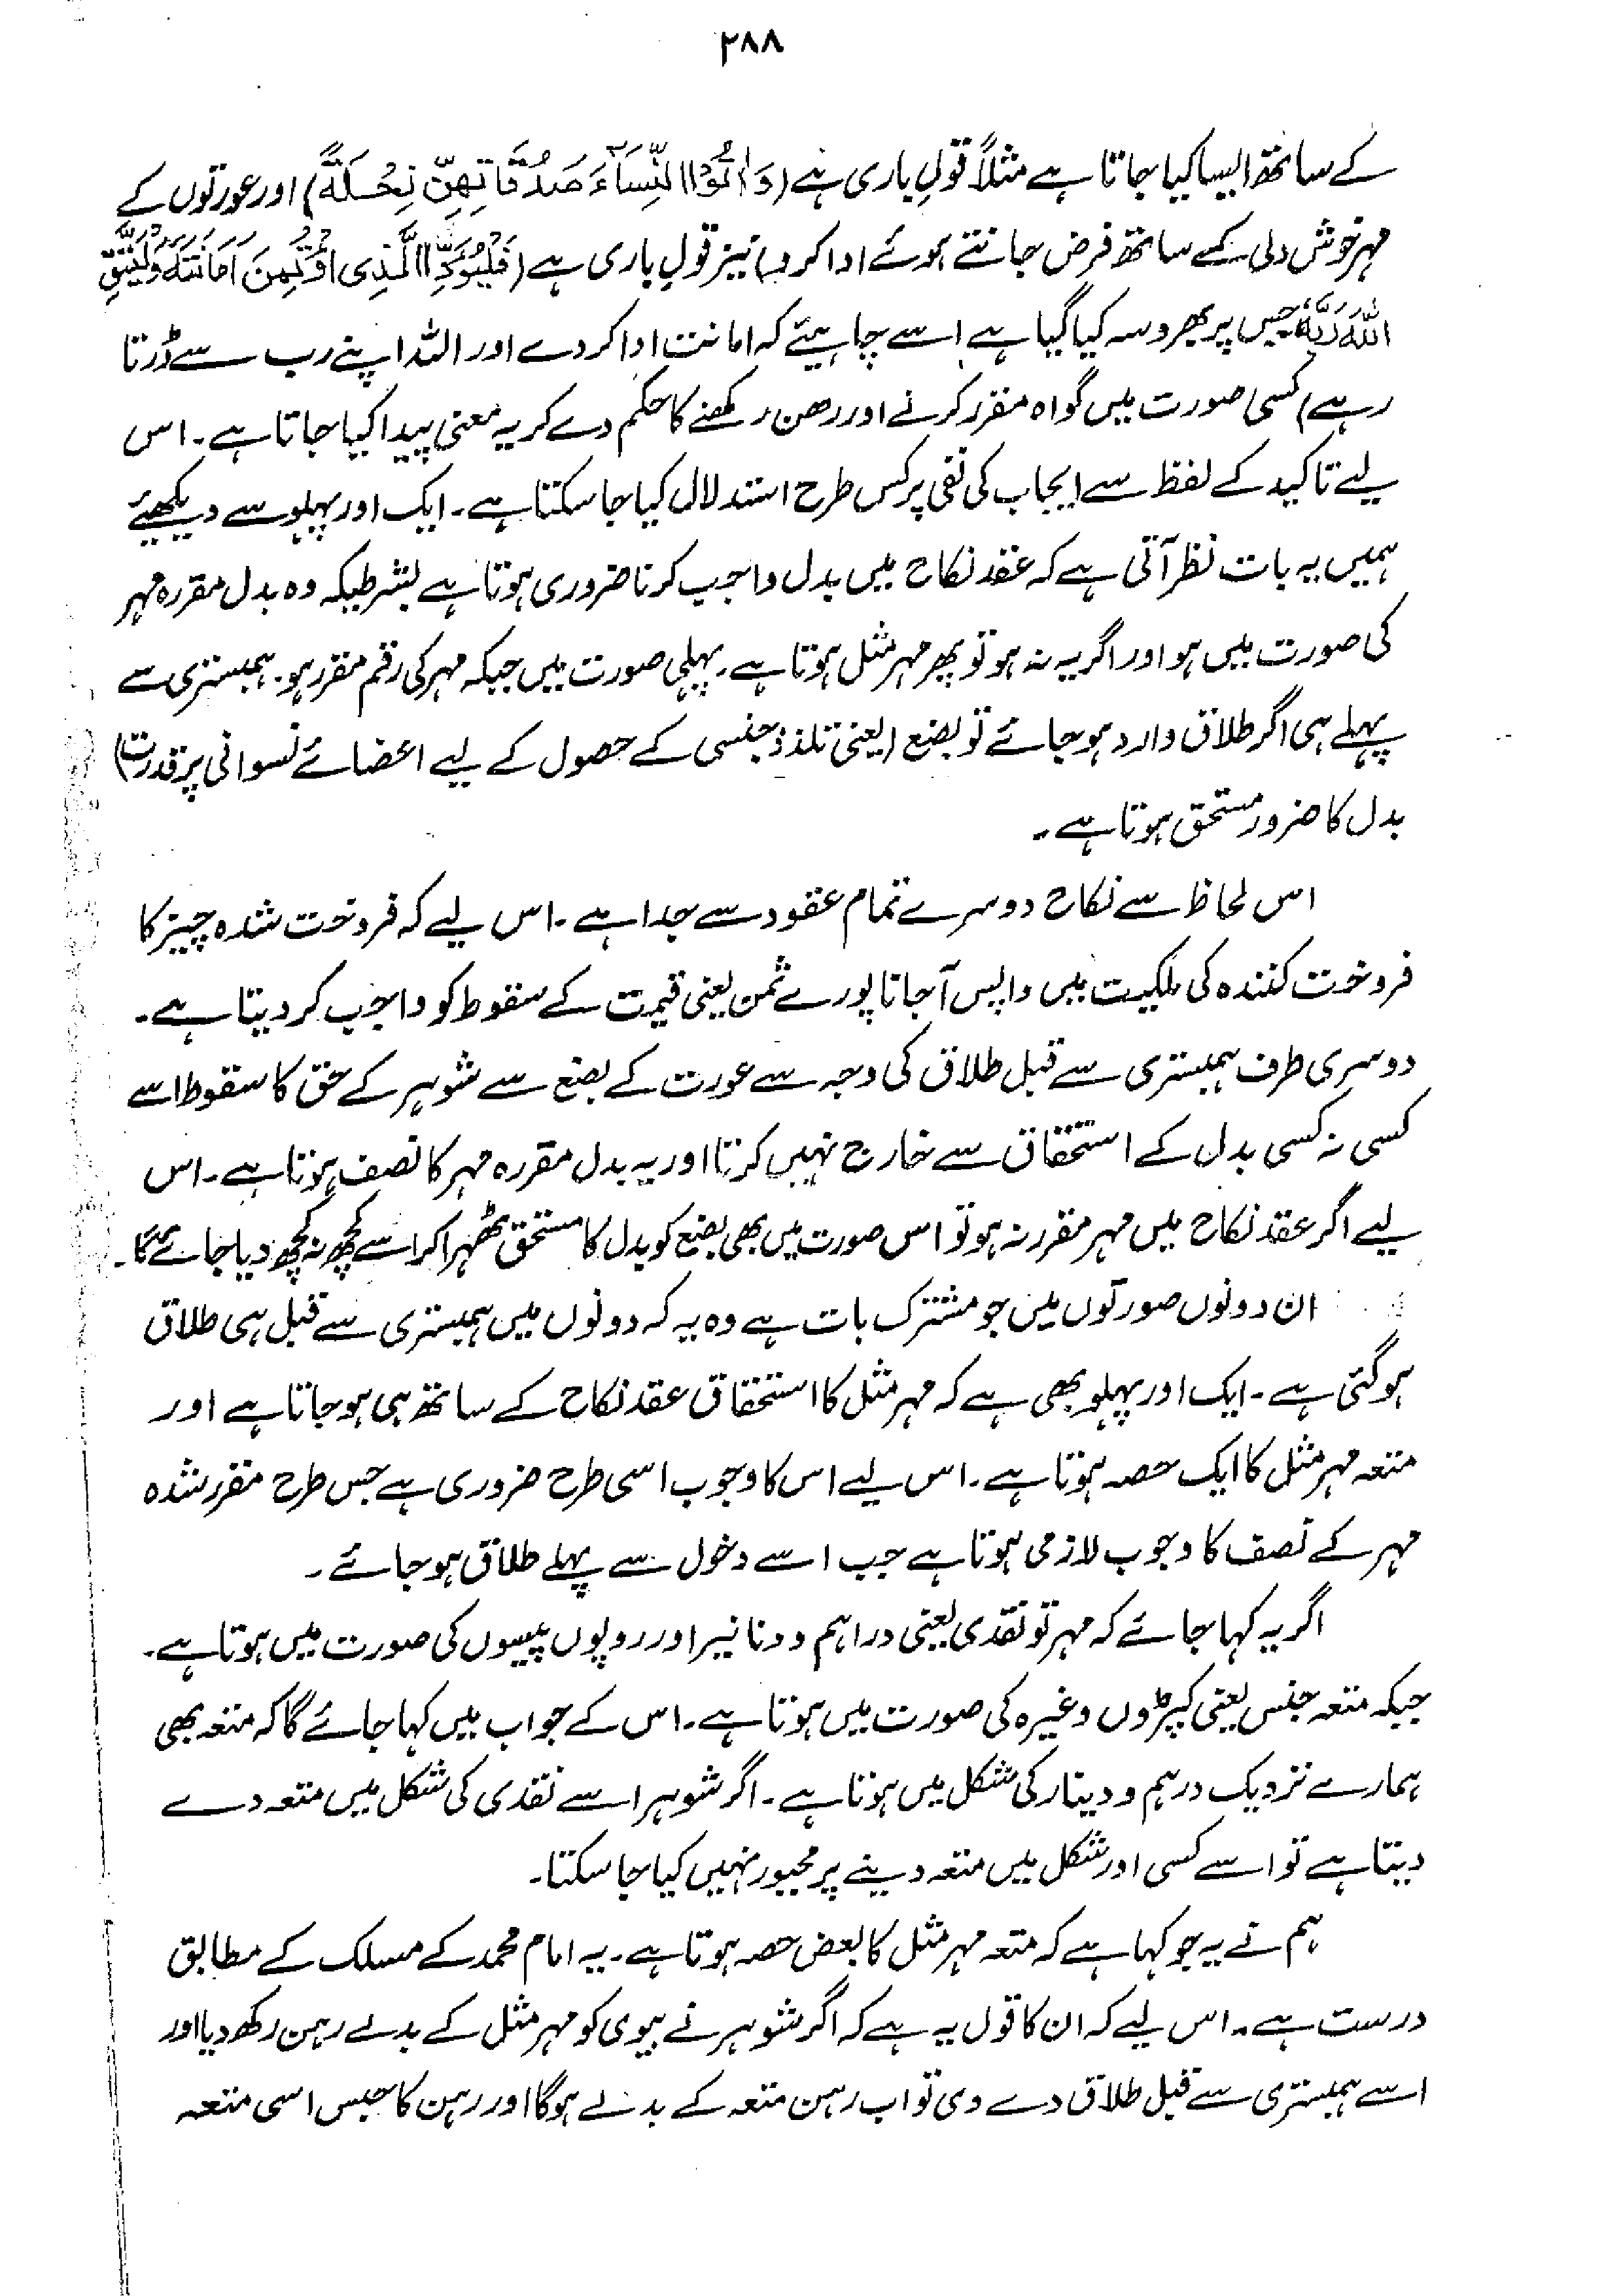 ۲۸۸
کے ساتھ ایسا کیا جاتا ہے مثلاً قولِ باری ہے (وَاٰتُوا النِّسَآءَ صَدُقَاتِهِنَّ نِحْلَةً) اور عورتوں کے
مہر خوش دلی کے ساتھ فرض جانتے ہوئے ادا کرو) نیز قولِ باری ہے (فَلْيُؤَدِّ الَّذِی اؤْتُمِنَ اَمَانَتَهُ وَلْيَتَّقِ
اللّٰهَ رَبَّهُ جس پر بھروسہ کیا گیا ہے اسے چاہیئے کہ امانت ادا کر دے اور اللہ اپنے رب سے ڈرتا
رہے) کسی صورت میں گواہ مقرر کرنے اور رھن رکھنے کا حکم دے کر یہ معنی پیدا کیا جاتا ہے۔ اس
لیے تاکید کے لفظ سے ایجاب کی نفی پر کس طرح استدلال کیا جا سکتا ہے۔ ایک اور پہلو سے دیکھیئے
ہمیں یہ بات نظر آتی ہے کہ عقد نکاح میں بدل واجب کرنا ضروری ہوتا ہے بشرطیکہ وہ بدل مقررہ مہر
کی صورت میں ہو اور اگر یہ نہ ہو تو پھر مہر مثل ہوتا ہے۔ پہلی صورت میں جبکہ مہر کی رقم مقرر ہو۔ ہمبستری سے
پہلے ہی اگر طلاق وارد ہو جائے تو بضع (یعنی تلذذ جنسی کے حصول کے لیے اعضائے نسوانی پر قدرت)
بدل کا ضرور مستحق ہوتا ہے۔
اس لحاظ سے نکاح دوسرے تمام عقود سے جدا ہے۔ اس لیے کہ فروخت شدہ چیز کا
فروخت کنندہ کی ملکیت میں واپس آجانا پورے ثمن یعنی قیمت کے سقوط کو واجب کر دیتا ہے۔
دوسری طرف ہمبستری سے قبل طلاق کی وجہ سے عورت کے بضع سے شوہر کے حق کا سقوط اسے
کسی نہ کسی بدل کے استحقاق سے خارج نہیں کرتا اور یہ بدل مقررہ مہر کا نصف ہوتا ہے۔ اس
لیے اگر عقد نکاح میں مہر مقرر نہ ہو تو اس صورت میں بھی بضع کو بدل کا مستحق ٹھہرا کر اسے کچھ نہ کچھ دیا جائے گا۔
ان دونوں صورتوں میں جو مشترک بات ہے وہ یہ کہ دونوں میں ہمبستری سے قبل ہی طلاق
ہو گئی ہے۔ ایک اور پہلو بھی ہے کہ مہر مثل کا استحقاق عقد نکاح کے ساتھ ہی ہو جاتا ہے اور
متعہ مہر مثل کا ایک حصہ ہوتا ہے۔ اس لیے اس کا وجوب اسی طرح ضروری ہے جس طرح مقرر شدہ
مہر کے نصف کا وجوب لازمی ہوتا ہے جب اسے دخول سے پہلے طلاق ہو جائے۔
اگر یہ کہا جائے کہ مہر تو نقدی یعنی دراہم و دنانیر اور روپوں پیسوں کی صورت میں ہوتا ہے۔
جبکہ متعہ جنس یعنی کپڑوں وغیرہ کی صورت میں ہوتا ہے۔ اس کے جواب میں کہا جائے گا کہ متعہ بھی
ہمارے نزدیک درہم و دینار کی شکل میں ہوتا ہے۔ اگر شوہر اسے نقدی کی شکل میں متعہ دے
دیتا ہے تو اسے کسی اور شکل میں متعہ دینے پر مجبور نہیں کیا جا سکتا۔
ہم نے یہ جو کہا ہے کہ متعہ مہر مثل کا بعض حصہ ہوتا ہے۔ یہ امام محمد کے مسلک کے مطابق
درست ہے۔ اس لیے کہ ان کا قول یہ ہے کہ اگر شوہر نے بیوی کو مہر مثل کے بدلے رہن رکھ دیا اور
اسے ہمبستری سے قبل طلاق دے دی تو اب رہن متعہ کے بدلے ہوگا اور رہن کا حبس اسی متعہ